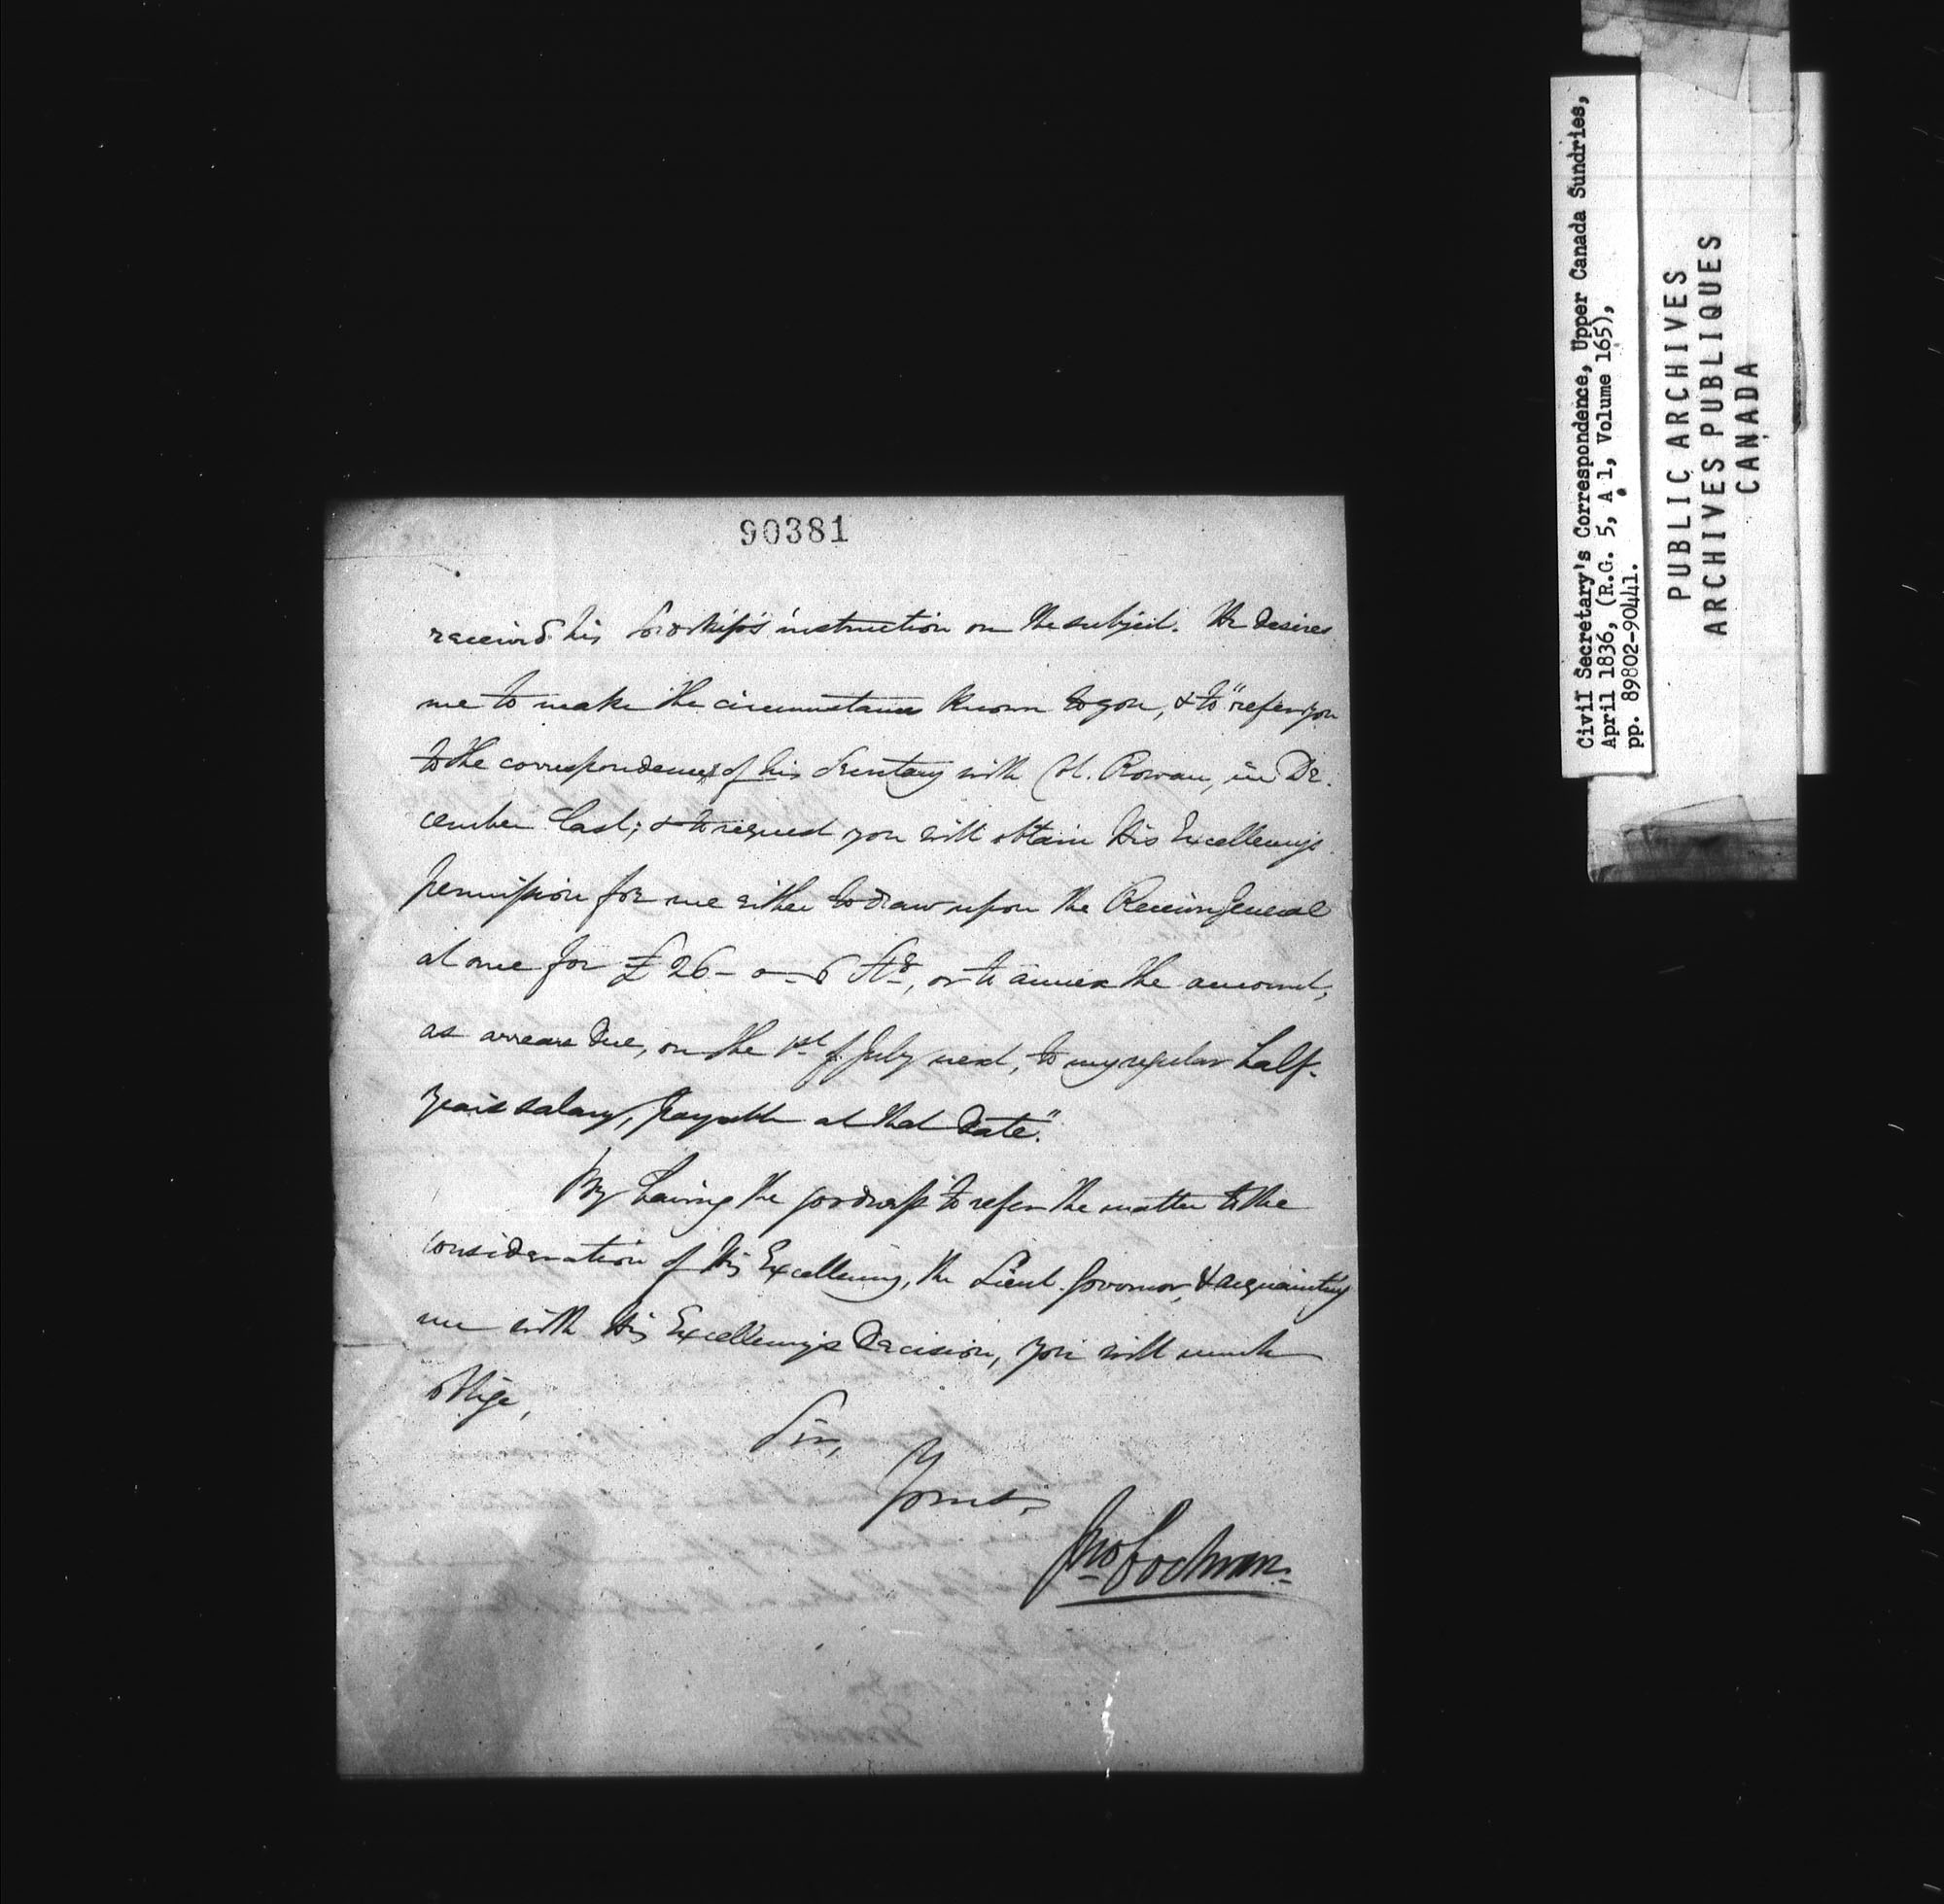 90381
received his Lordship's instruction on the subject. He desires
me to make the circumstance known to you, & to "refer you
to the correspondence of his Secretary with Col. Rowan, in De-
cember last; & to request you will obtain His Excellency's
permission for me either to draw upon the Receiver General
at once for £26-0-6 Stg, or to annex the amount,
as arrear due, on the 1st of July next, to my regular half-
year's salary, payable at that date."
By having the goodness to refer the matter to the
consideration of His Excellency, the Lieut. Governor, & acquainting
me with His Excellency's Decision, you will much
oblige,
Sir,
Yours,
Jno Cochran.
Civil Secretary's Correspondence, Upper Canada Sundries,
April 1836, (R.G. 5, A 1, Volume 165),
pp. 89802-90441.
PUBLIC ARCHIVES
ARCHIVES PUBLIQUES
CANADA